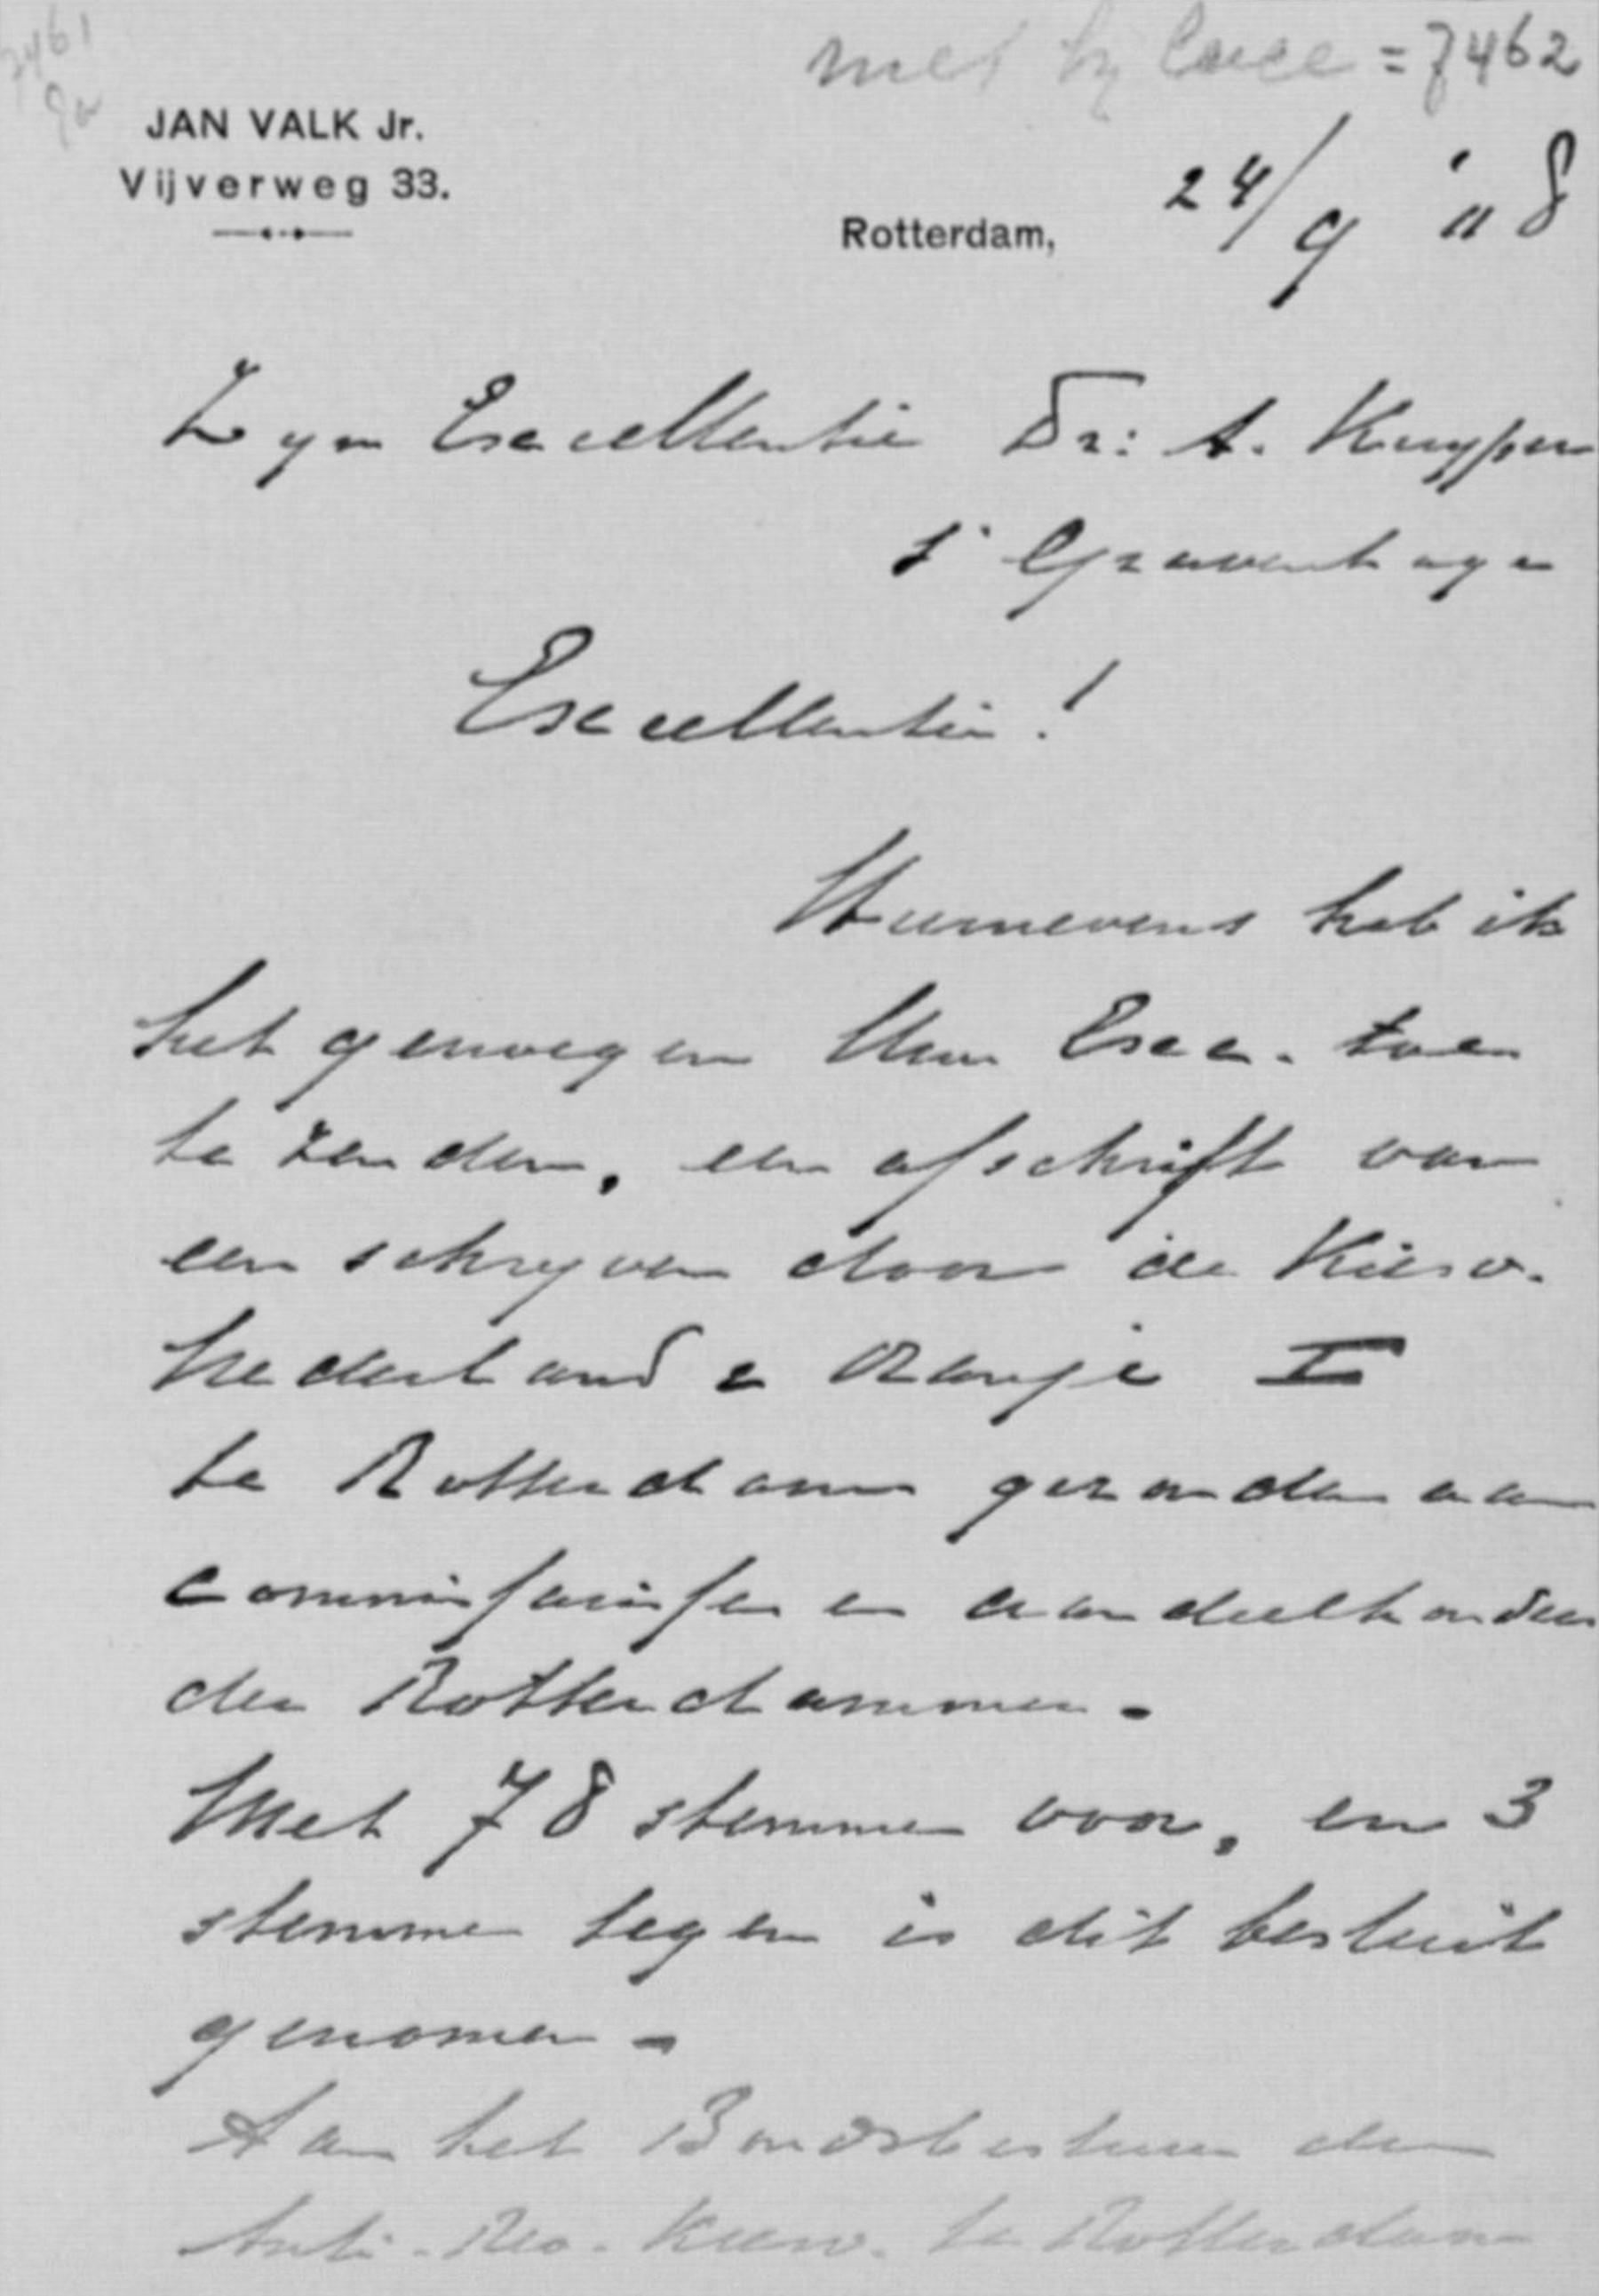 7461
met bylage = 7462
JAN VALK Jr.
Vijverweg 33.
Rotterdam, 24/9 '08
Zyn Excellentie Dr: A. Kuyper
s' Gravenhage
Excellentie!
Hiernevens heb ik
het genoegen Uwe Exce. toe
te zenden, een afschrift van
een schryven door de Kiesv.
Nederland & Oranje I
te Rotterdam gezonden aan
commissarissen en aandeelhouders
der Rotterdammer.
Met 78 stemmen voor, en 3
stemmen tegen is dit besluit
genomen.
Aan het Bondsbestuur der
Anti-Rev. Kiesv. te Rotterdam